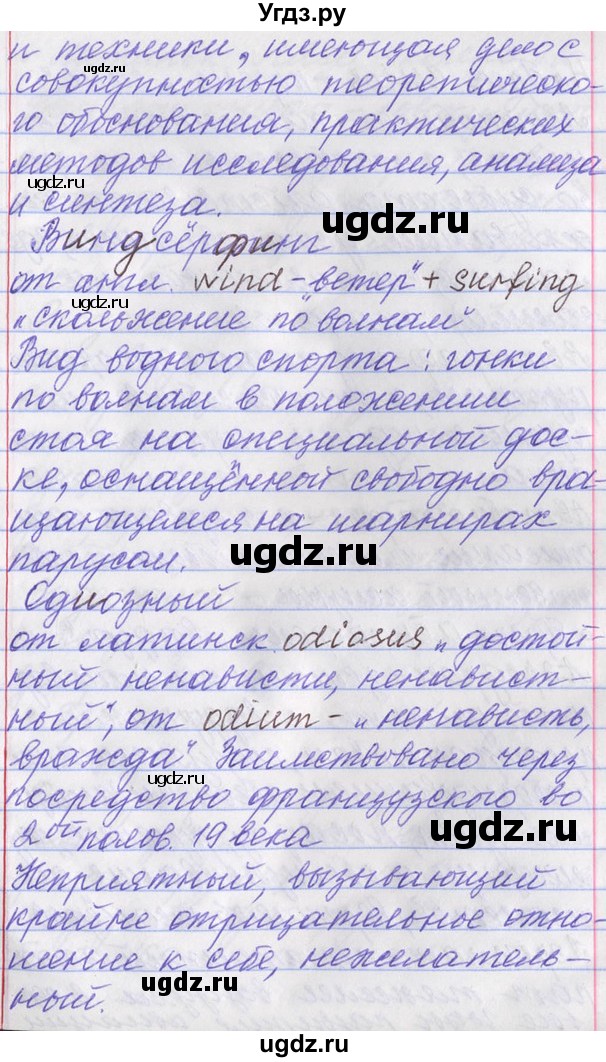 Угдз.ру
и техники, имеющая дело с
совокупностью теоретическо-
го обоснования, практических
методов исследования, анализа
и синтеза.
Виндсёрфинг
от англ. wind - ветер" + surfing
„скольжение по волнам"
Вид водного спорта: гонки
по волнам в положении
стоя на специальной дос-
ке, оснащённой свободно вра-
щающемся на шарнирах
парусом.
Одиозный
от латинск. odiosus „достой-
ный ненависти, ненавист-
ный", от odium - „ненависть,
вражда" Заимствовано через
посредство французского во
2ой полов. 19 века
Неприятный, вызывающий
крайне отрицательное отно-
шение к себе, нежелатель-
ный.
ugdz.ru
ugdz.ru
ugdz.ru
ugdz.ru
ugdz.ru
ugdz.ru
ugdz.ru
ugdz.ru
ugdz.ru